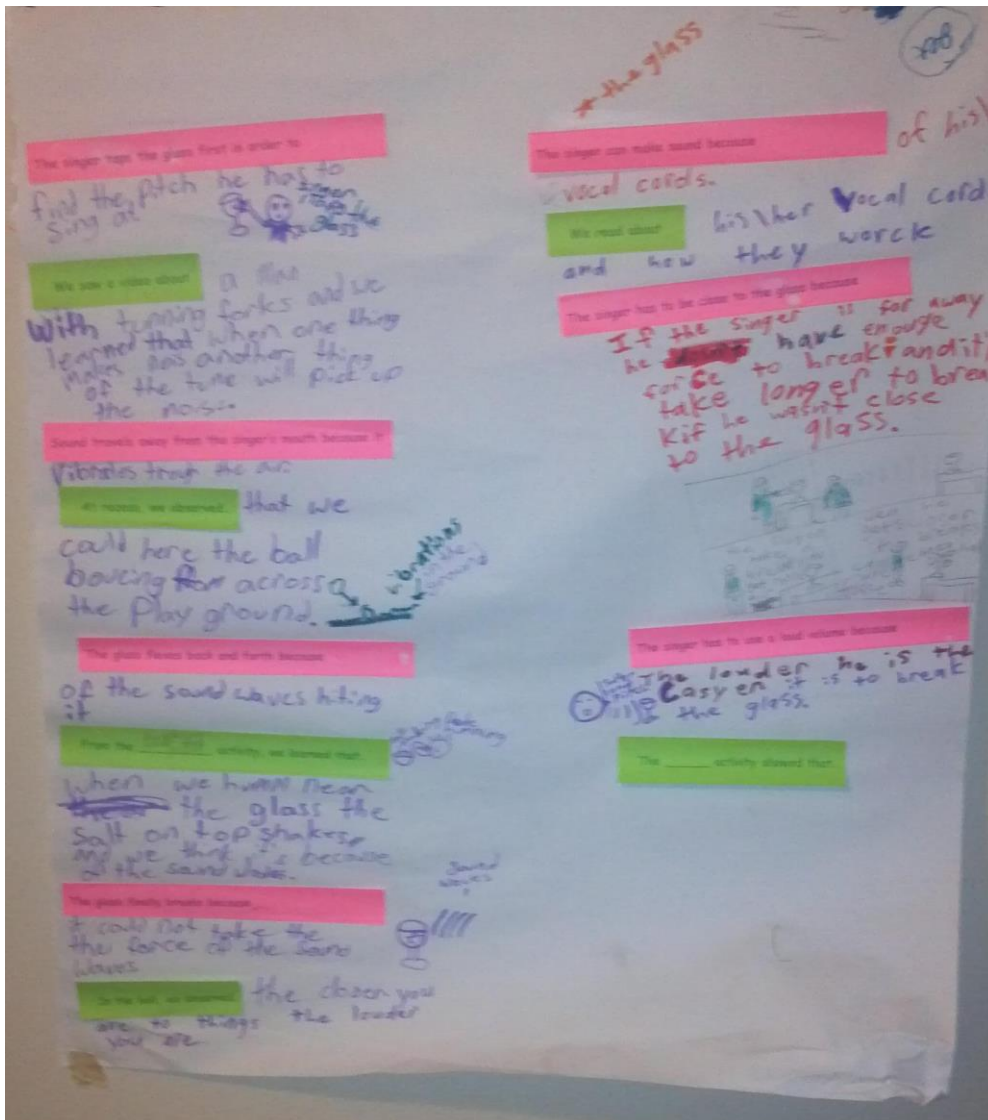 * the glass
The singer taps the glass first in order to
find the pitch he has to
sing at
We saw a video about a man
With tunning forks and we
learned that when one thing
makes nois another thing
of the tune will pick up
the nois
Sound travels away from the singer's mouth because it
Vibrates trough the air
At recess, we observed that we
could here the ball
boucing across
the Play ground.
vibrations
in the
ground
The glass flexes back and forth because
of the sound waves hiting
it
From the activity, we learned that
When we humm near
the glass the
Salt on top shakes,
and we think it's because
of the sound waves.
The glass finally breaks because
it could not take the
the force of the sound
waves
Sound
waves
In the hall, we observed the closer you
are to things the louder
you are
The singer can make sound because of his\
vocal cords.
We read about his\her Vocal cord
and how they worck
The singer has to be close to the glass because
If the singer is far away
he have enouge
force to break it and it
take longer to brea
k if he wasn't close
to the glass.
The singer has to use a loud volume because
The louder he is the
Easyer it is to break
the glass.
The ______ activity showed that